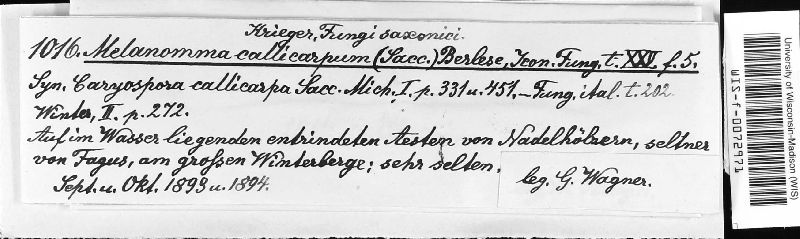 Krieger, Fungi saxonici.
1016. Melanomma callicarpum (Sacc.) Berlese, Icon. Fung. t. XXV, f. 5.
Syn. Caryospora callicarpa Sacc. Mich. I. p. 331 u. 451. – Fung. ital. t. 202.
Winter, II. p. 272.
Auf im Wasser liegenden entrindeten Aesten von Nadelhölzern, seltner
von Fagus, am großen Winterberge; sehr selten.
Sept. u. Okt. 1893 u. 1894.
leg. G. Wagner.
University of Wisconsin-Madison (WIS)
WIS-f-0072971